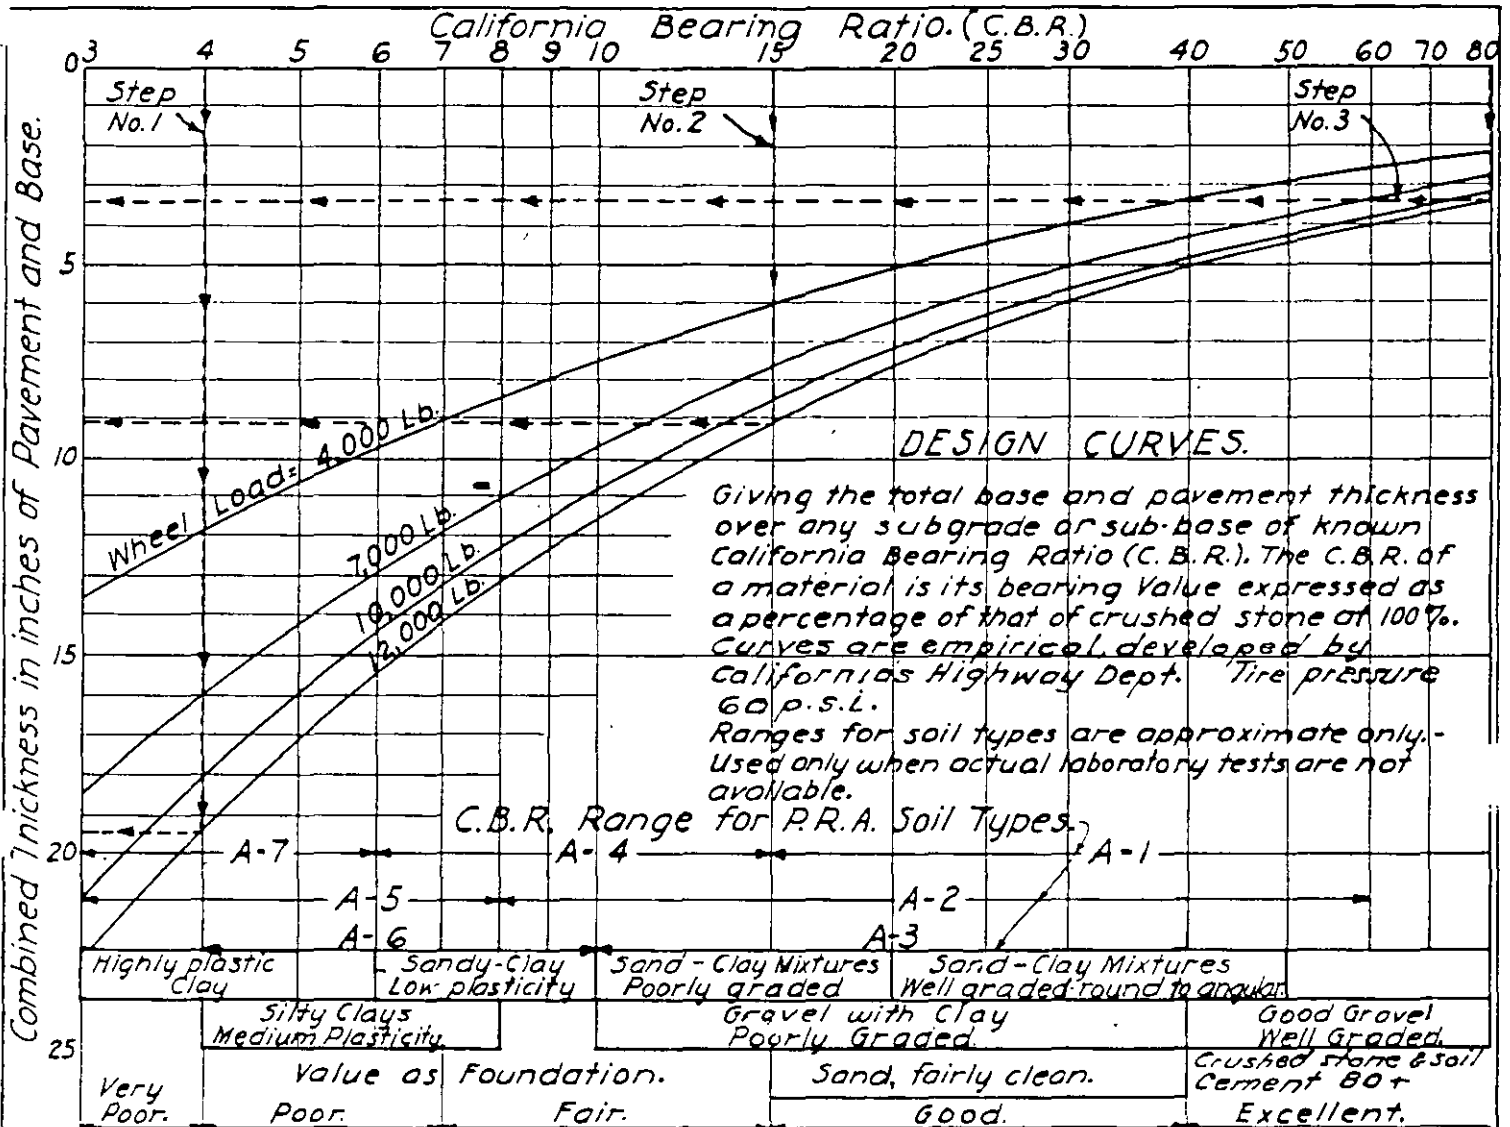 California Bearing Ratio. (C.B.R.)
3 4 5 6 7 8 9 10 15 20 25 30 40 50 60 70 80
0
5
10
15
20
25
Combined Thickness in inches of Pavement and Base.
Step
No. 1
Step
No. 2
Step
No. 3
Wheel Load = 4,000 Lb.
7,000 Lb.
10,000 Lb.
12,000 Lb.
DESIGN CURVES.
Giving the total base and pavement thickness
over any subgrade or sub-base of known
California Bearing Ratio (C.B.R.). The C.B.R. of
a material is its bearing Value expressed as
a percentage of that of crushed stone at 100%.
Curves are empirical, developed by
California's Highway Dept. Tire pressure
60 p.s.i.
Ranges for soil types are approximate only.-
Used only when actual laboratory tests are not
available.
C.B.R. Range for P.R.A. Soil Types.
A-7 A-4 A-1
A-5 A-2
A-6 A-3
Highly plastic
Clay
Sandy-Clay
Low plasticity
Sand-Clay Mixtures
Poorly graded
Sand-Clay Mixtures
Well graded round to angular
Silty Clays
Medium Plasticity.
Gravel with Clay
Poorly Graded.
Good Gravel
Well Graded.
Value as Foundation.
Sand, fairly clean.
Crushed stone & soil
Cement 80+
Very
Poor.
Poor.
Fair.
Good.
Excellent.